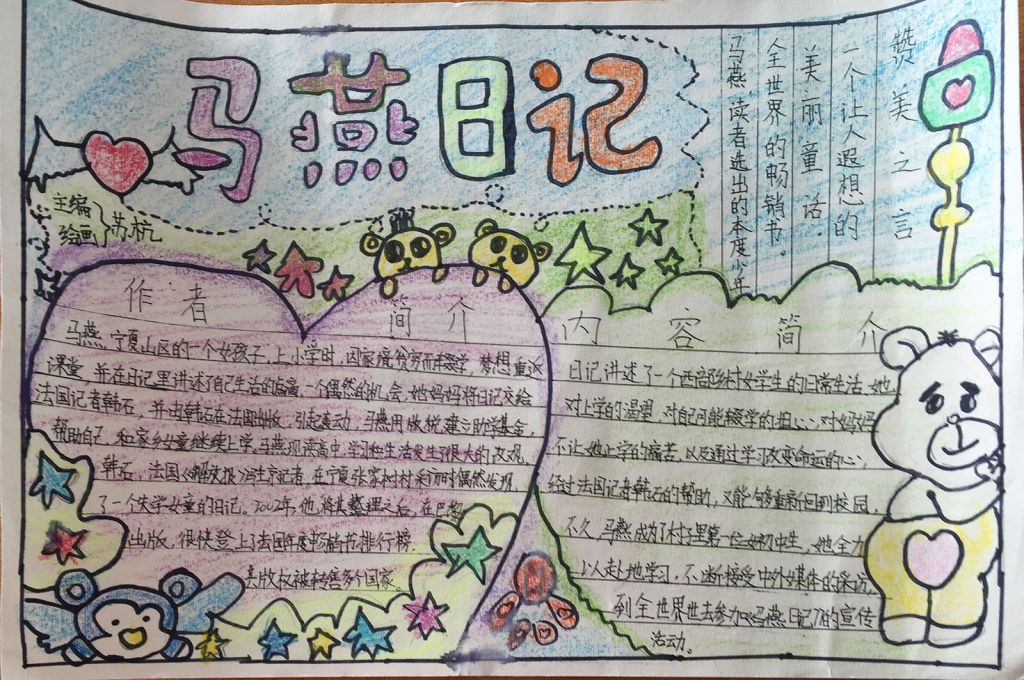 马燕日记
主编
绘画
苏杭
赞美之言
一个让人遐想的
美丽童话.
全世界的畅销书。
马燕读者选出的本度少年
作者
简介
马燕,宁夏山区的一个女孩子,上小学时,因家境贫穷而辍学,梦想重返
课堂,并在日记里讲述了自己生活的 一个偶然的机会,她妈妈将日记交给
法国记者韩石,并由韩石在法国出版,引起轰动,马燕用版税建立助学基金,
帮助自己,和家乡女童继续上学,马燕现读高中,学习和生活发生了很大的改观,
韩石,法国《解放报》驻京记者,在宁夏张家树村采访时偶然发现
了一个失学女童的日记。2002年,他,将其整理之后,在巴黎
出版,很快登上了法国年度畅销书排行榜.
其版权被转售多个国家
内容简介
日记讲述了一个西部乡村女学生的日常生活,她
对上学的渴望,对自己可能辍学的担心,对妈妈
不让她上学的痛苦,以及通过学习改变命运的心,
经过法国记者韩石的帮助,又能够重新回到校园,
不久,马燕成为了村子里第一位女初中生,她全力
以赴地学习,不断接受中外媒体的采访,
到全世界世去参加《马燕日记》的宣传
活动。